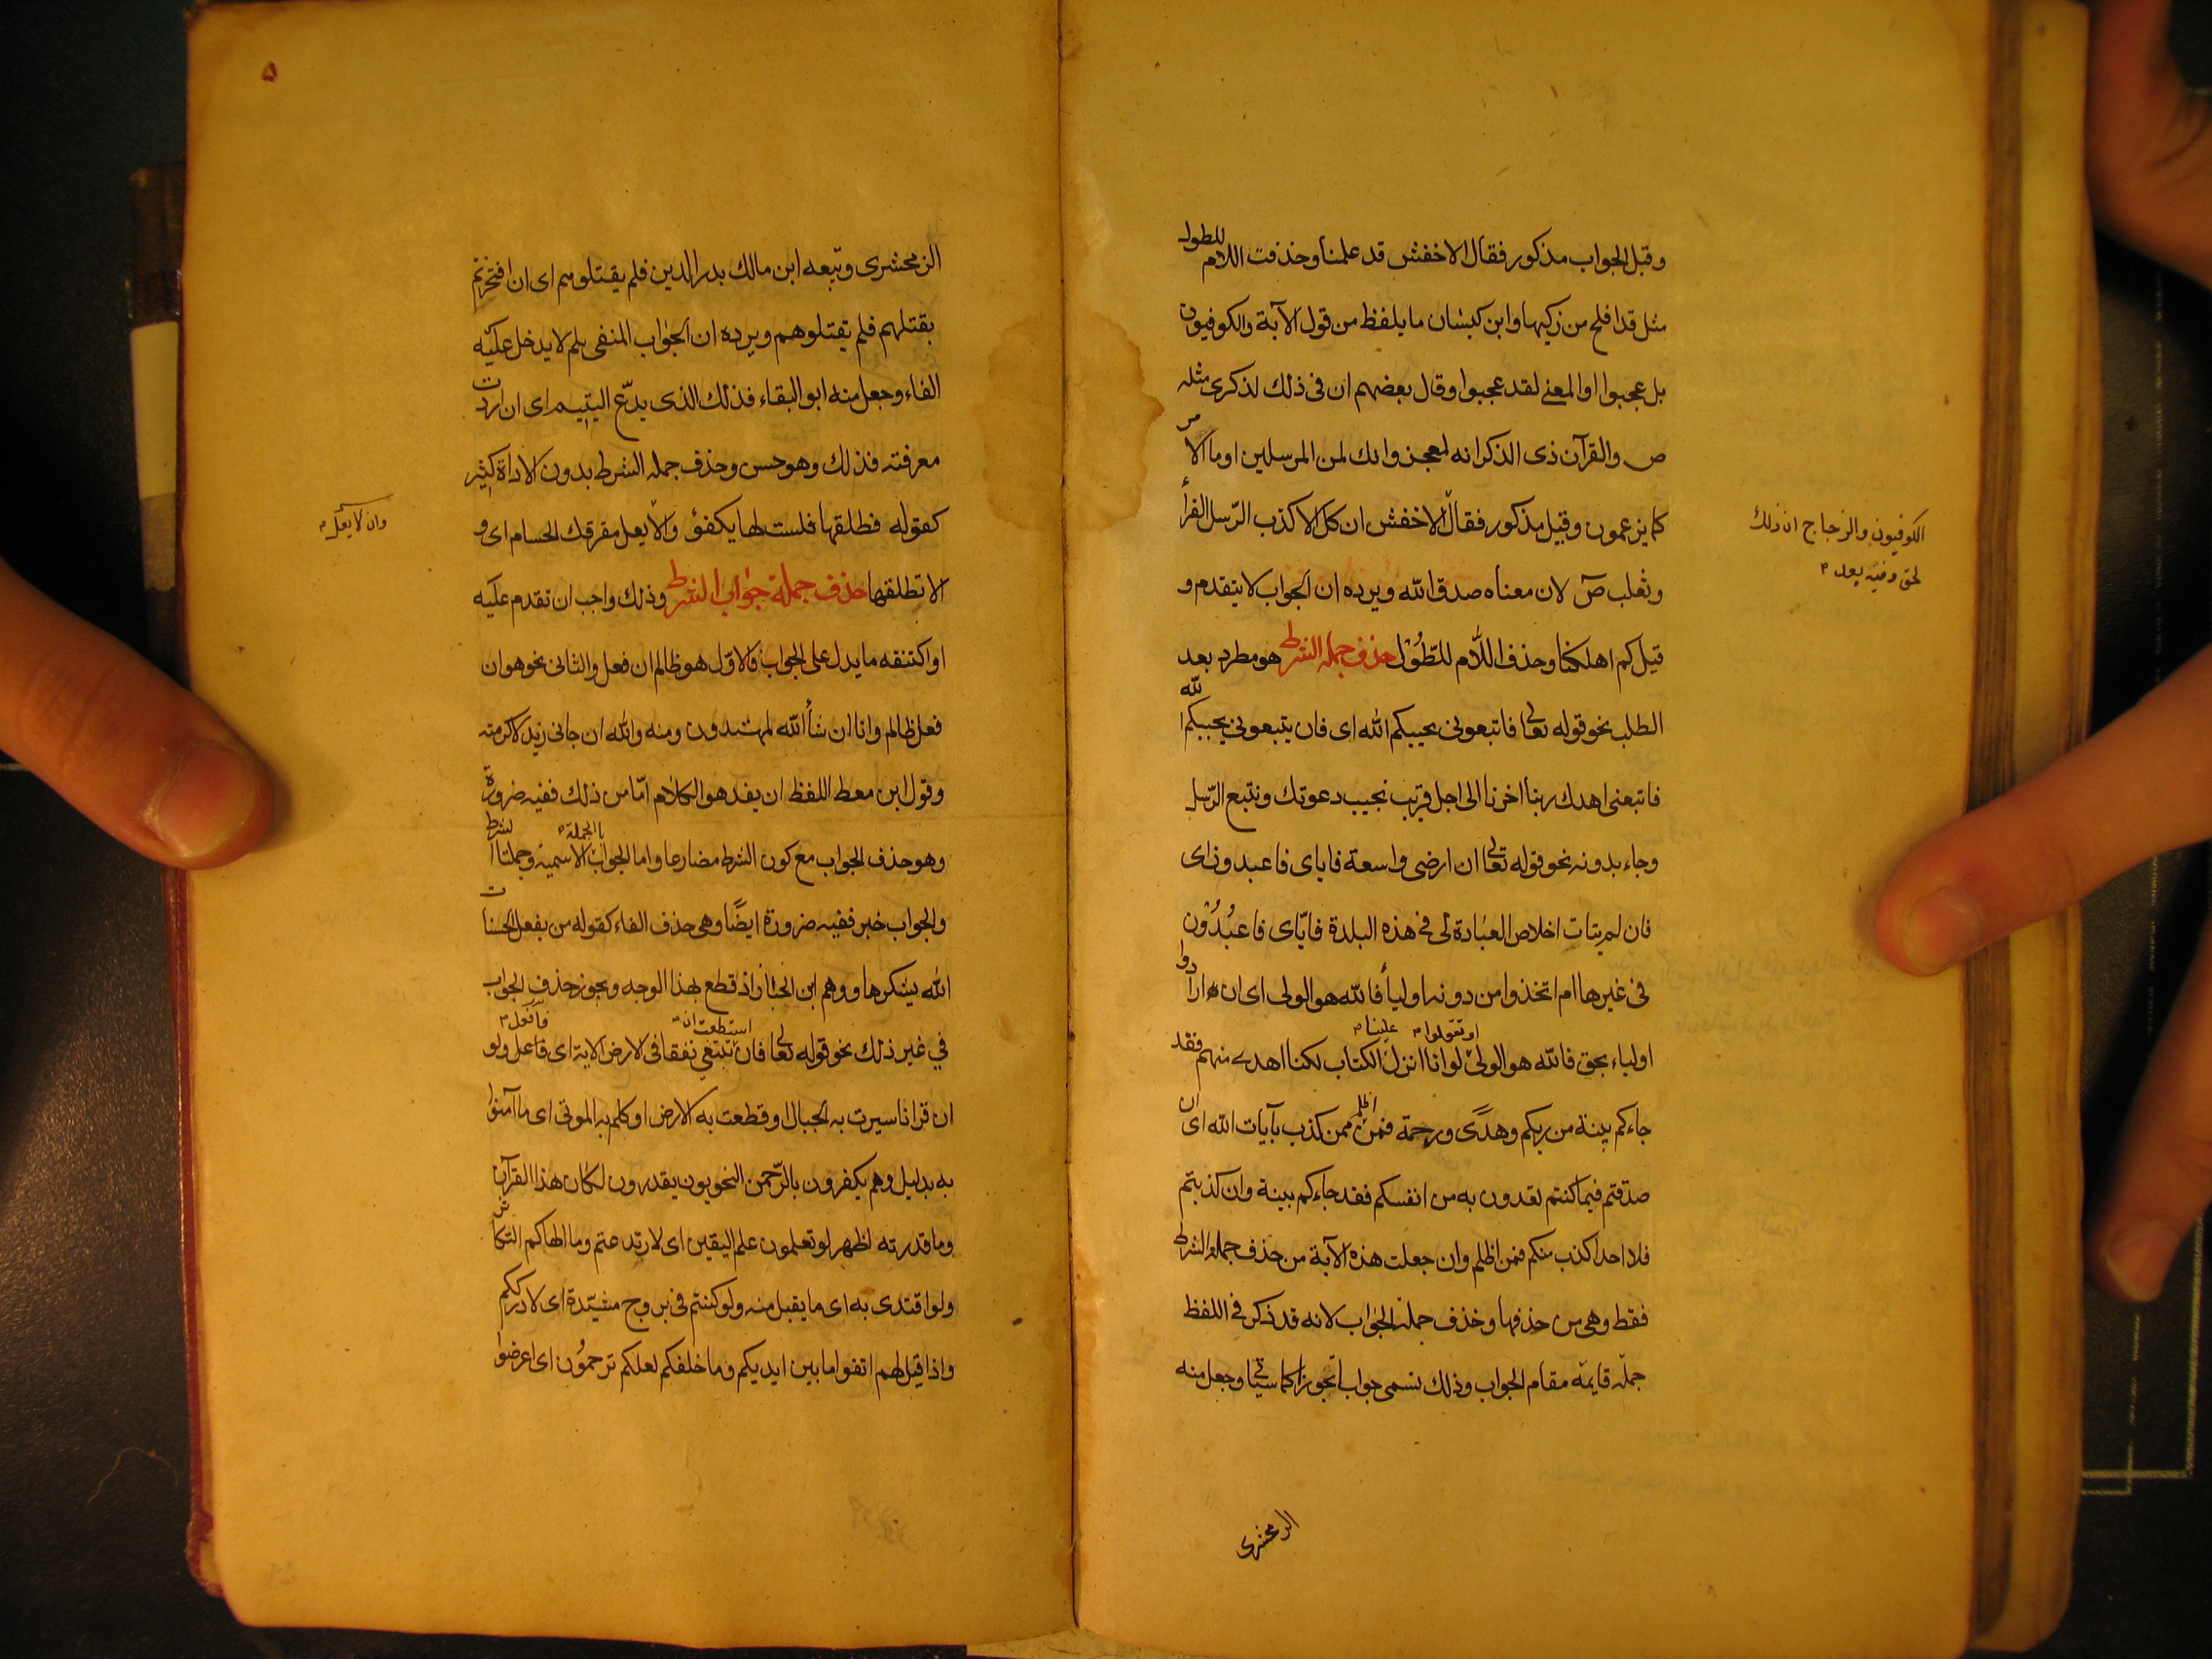 وقبل الجواب مذكور فقال الاخفش قد علمنا وحذفت اللام للطول
مثل قد افلح من زكيها وابن كيسان ما يلفظ من قول الآية والكوفيون
بل عجبوا او المعنى لقد عجبوا وقال بعضهم ان فى ذلك لذكرى مثله
ص والقرآن ذى الذكر انه لمعجز وانك لمن المرسلين او ما الامر
كما يزعمون وقيل مذكور فقال الاخفش ان كل الا كذب الرسل الفرأ
الكوفيون والزجاج ان ذلك
لحق وفيه بعد
وثعلب ص لان معناه صدق الله ويرده ان الجواب لا يتقدم و
قيل كم اهلكنا وحذف اللام للطول حذف جملة الشرط هو مطرد بعد
الطلب نحو قوله تعالى فاتبعونى يحببكم الله اى فان يتبعونى يحببكم الله
فاتبعنى اهدك ربنا اخرنا الى اجل قريب نجيب دعوتك ونتبع الرسل
وجاء بدونه نحو قوله تعالى ان ارضى واسعة فاياى فاعبدون اى
فان لم يتات اخلاص العبادة لى فى هذه البلدة فاياى فاعبدون
فى غيرها ام اتخذوا من دونه اوليأ فالله هو الولى اى ان ارادوا
اولياء بحق فالله هو الولى او تقولوا لو انا انزل علينا الكتاب لكنا اهدى منهم فقد
جاءكم بينة من ربكم وهدى ورحمة فمن اظلم ممن كذب بآيات الله اى ان
صدقتم فيما كنتم تعدون به من انفسكم فقد جاءكم بينة وان كذبتم
فلا احد اكذب منكم فمن اظلم وان جعلت هذه الآية من حذف جملة الشرط
فقط وهى من حذفها وحذف جملة الجواب لانه قد ذكر فى اللفظ
جملة قايمة مقام الجواب وذلك تسمى جوابا تجوزا كما سيأتى وجعل منه
الزمخشرى
الزمخشرى وتبعه ابن مالك بدر الدين فلم يقتلوهم اى ان افتخرتم
بقتلهم فلم تقتلوهم ويرده ان الجواب المنفى بلم لا يدخل عليه
الفاء وجعل منه ابو البقاء فذلك الذى يدع اليتيم اى ان اردت
معرفته فذلك وهو حسن وحذف جملة الشرط بدون الاداة كثير
كقوله فطلقها فلست لها بكفؤ والا يعل مفرقك الحسام اى و
وان لا يعل
الا تطلقها حذف جملة جواب الشرط وذلك واجب ان تقدم عليه
او اكتنفه ما يدل على الجواب فالاول هو ظالم ان فعل والثانى نحو هو ان
فعل ظالم وانا ان شأ الله لمهتدون ومنه والله ان جانى زيد لاكرمته
وقول ابن معط اللفظ ان يفد هو الكلام اما من ذلك ففيه ضرورة
وهو حذف الجواب مع كون الشرط مضارعا واما الجواب بالجملة الاسمية وجملتا الشرط
والجواب خبر ففيه ضرورة ايضا وهى حذف الفاء كقوله من يفعل الحسنات
الله يشكرها ووهم ابن الخباز اذ قطع بهذا الوجه ويجوز حذف الجواب
في غير ذلك نحو قوله تعالى فان استطعت ان تبتغى نفقا فى الارض الاية اى فافعل ولو
ان قرانا سيرت به الجبال او قطعت به الارض او كلم به الموتى اى ما آمنوا
به بدليل وهم يكفرون بالرحمن النحويون يقدرون لكان هذا القرآن
وما قدرته اظهر لو تعلمون علم اليقين اى لارتدعتم وما الهاكم التكاثر
ولو افتدى به اى ما يقبل منه ولو كنتم فى بروج مشيدة اى لادرككم
واذا قيل لهم اتقوا ما بين ايديكم وما خلفكم لعلكم ترحمون اى اعرضوا